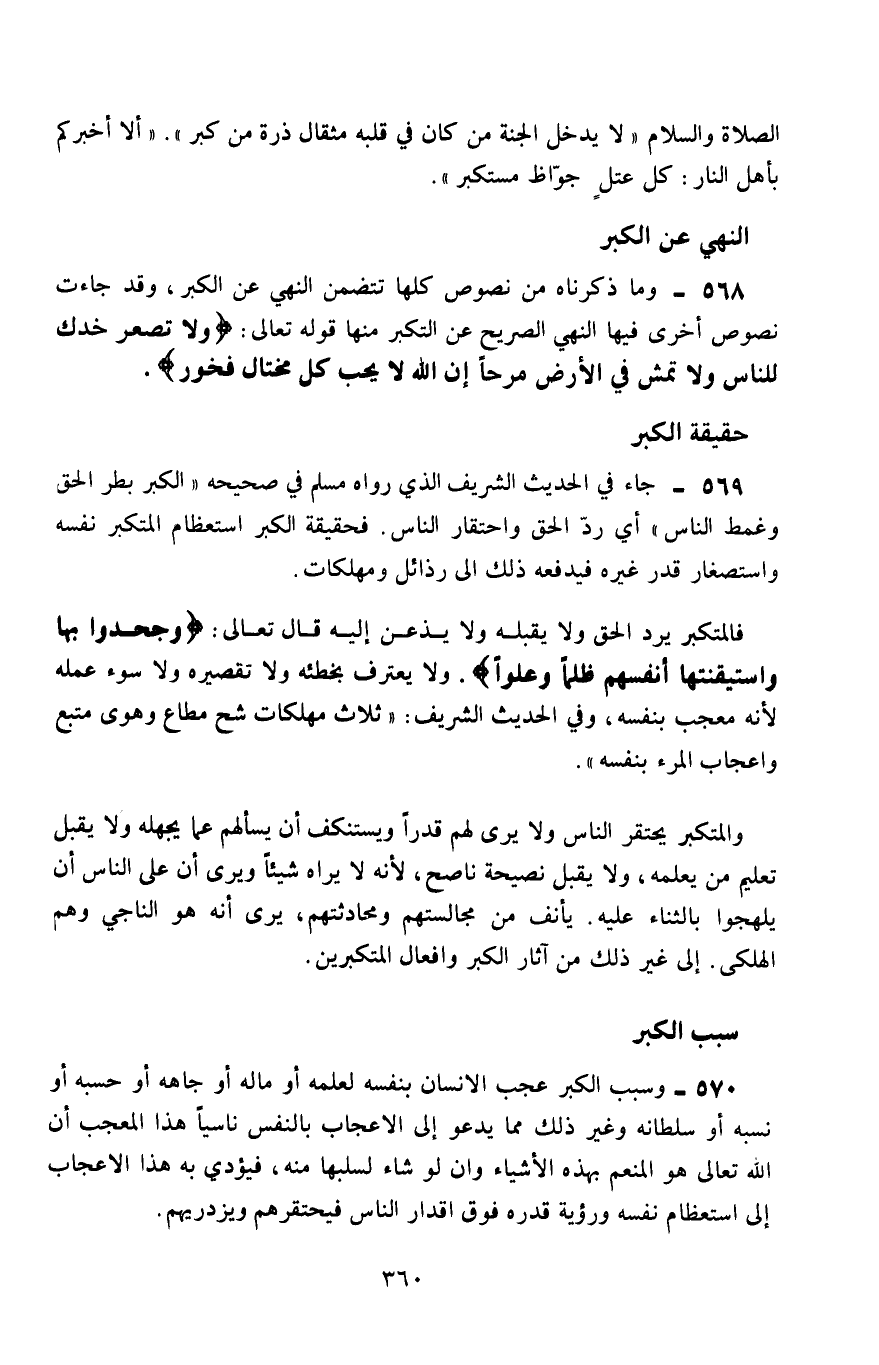 الصلاة والسلام « لا يدخل الجنة من كان في قلبه مثقال ذرة من كبر » . « ألا أخبركم
بأهل النار : كل عتلٍ جوّاظ مستكبر » .
النهي عن الكبر
٥٦٨ ـ وما ذكرناه من نصوص كلها تتضمن النهي عن الكبر ، وقد جاءت
نصوص أخرى فيها النهي الصريح عن التكبر منها قوله تعالى : ﴿ولا تصعر خدك
للناس ولا تمش في الأرض مرحاً إن الله لا يحب كل مختال فخور﴾ .
حقيقة الكبر
٥٦٩ ـ جاء في الحديث الشريف الذي رواه مسلم في صحيحه « الكبر بطر الحق
وغمط الناس » أي ردّ الحق واحتقار الناس . فحقيقة الكبر استعظام المتكبر نفسه
واستصغار قدر غيره فيدفعه ذلك الى رذائل ومهلكات .
فالمتكبر يرد الحق ولا يقبله ولا يذعن إليه قال تعالى : ﴿وجحدوا بها
واستيقنتها أنفسهم ظلماً وعلواً﴾ . ولا يعترف بخطئه ولا تقصيره ولا سوء عمله
لأنه معجب بنفسه ، وفي الحديث الشريف : « ثلاث مهلكات شح مطاع وهوى متبع
واعجاب المرء بنفسه » .
والمتكبر يحتقر الناس ولا يرى لهم قدراً ويستنكف أن يسألهم عما يجهله ولا يقبل
تعليم من يعلمه ، ولا يقبل نصيحة ناصح ، لأنه لا يراه شيئاً ويرى أن على الناس أن
يلهجوا بالثناء عليه . يأنف من مجالستهم ومحادثتهم ، يرى أنه هو الناجي وهم
الهلكى . إلى غير ذلك من آثار الكبر وافعال المتكبرين .
سبب الكبر
٥٧٠ ـ وسبب الكبر عجب الانسان بنفسه لعلمه أو ماله أو جاهه أو حسبه أو
نسبه أو سلطانه وغير ذلك مما يدعو إلى الاعجاب بالنفس ناسياً هذا المعجب أن
الله تعالى هو المنعم بهذه الأشياء وان لو شاء لسلبها منه ، فيؤدي به هذا الاعجاب
إلى استعظام نفسه ورؤية قدره فوق اقدار الناس فيحتقرهم ويزدريهم .
٣٦٠